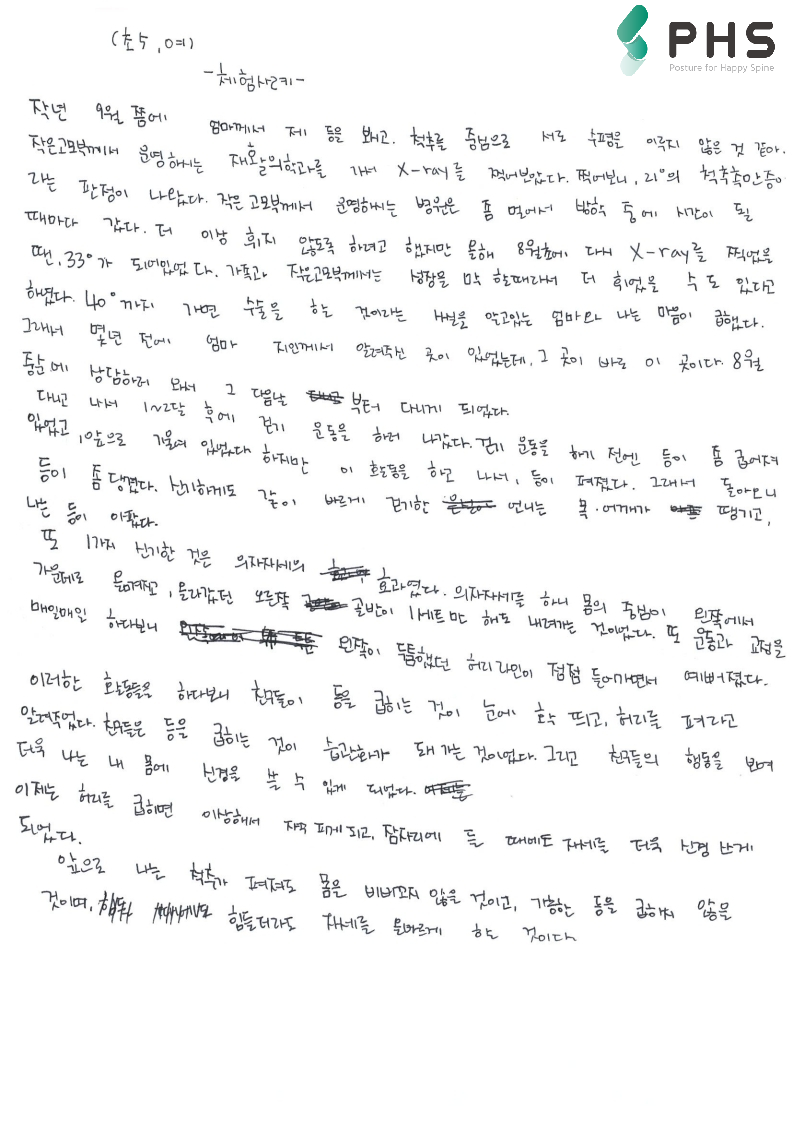 PHS
Posture for Happy Spine
(초5, 여)
-체험사례-
작년 9월 쯤에 엄마께서 제 등을 봐시고, 척추를 중심으로 서로 수평을 이루지 않은 것 같아.
작은고모부께서 운영하시는 재활의학과를 가서 X-ray를 찍어보았다. 찍어보니, 21°의 척추측만증이
라는 판정이 나왔다. 작은고모부께서 운영하시는 병원은 좀 멀어서 방학 중에 시간이 될
때마다 갔다. 더 이상 휘지 않도록 하려고 했지만 올해 8월초에 다시 X-ray를 찍었을
땐, 33°가 되어있었다. 가족과 작은고모부께서는 성장을 막 할때라서 더 휘었을 수도 있다고
하셨다. 40°까지 가면 수술을 하는 것이라는 사실을 알고있는 엄마와 나는 마음이 급했다.
그래서 몇년 전에 엄마 지인께서 알려주신 곳이 있었는데, 그 곳이 바로 이 곳이다. 8월
중순에 상담하러 와서 그 다음날 부터 다니게 되었다.
다니고 나서 1~2달 후에 걷기 운동을 하러 나갔다. 걷기 운동을 하기 전엔 등이 좀 굽어져
있었고, 앞으로 기울여 있었다 하지만 이 활동을 하고 나서, 등이 펴졌다. 그래서 돌아오니
등이 좀 당겼다. 신기하게도 같이 바르게 걷기한 언니는 목·어깨가 땡기고,
나는 등이 아팠다.
또 1가지 신기한 것은 의자자세의 효과였다. 의자자세를 하니 몸의 중심이 왼쪽에서
가운데로 옮겨졌고, 올라갔던 오른쪽 골반이 1세트만 해도 내려가는 것이었다. 또 운동과 교정을
매일매일 하다보니 왼쪽이 두툼했던 허리라인이 점점 들어가면서 예뻐졌다.
이러한 활동들을 하다보니 친구들이 등을 굽히는 것이 눈에 확 띄고, 허리를 펴라고
알려주었다. 친구들은 등을 굽히는 것이 습관화가 돼 가는 것이었다. 그리고 친구들의 행동을 보며
더욱 나는 내 몸에 신경을 쓸 수 있게 되었다.
이제는 허리를 굽히면 이상해서 자꾸 피게 되고, 잠자리에 들 때에도 자세를 더욱 신경 쓰게
되었다.
앞으로 나는 척추가 펴져도 몸을 비비꼬지 않을 것이고, 가항는 등을 굽히지 않을
것이며, 힘들더라도 자세를 올바르게 하는 것이다